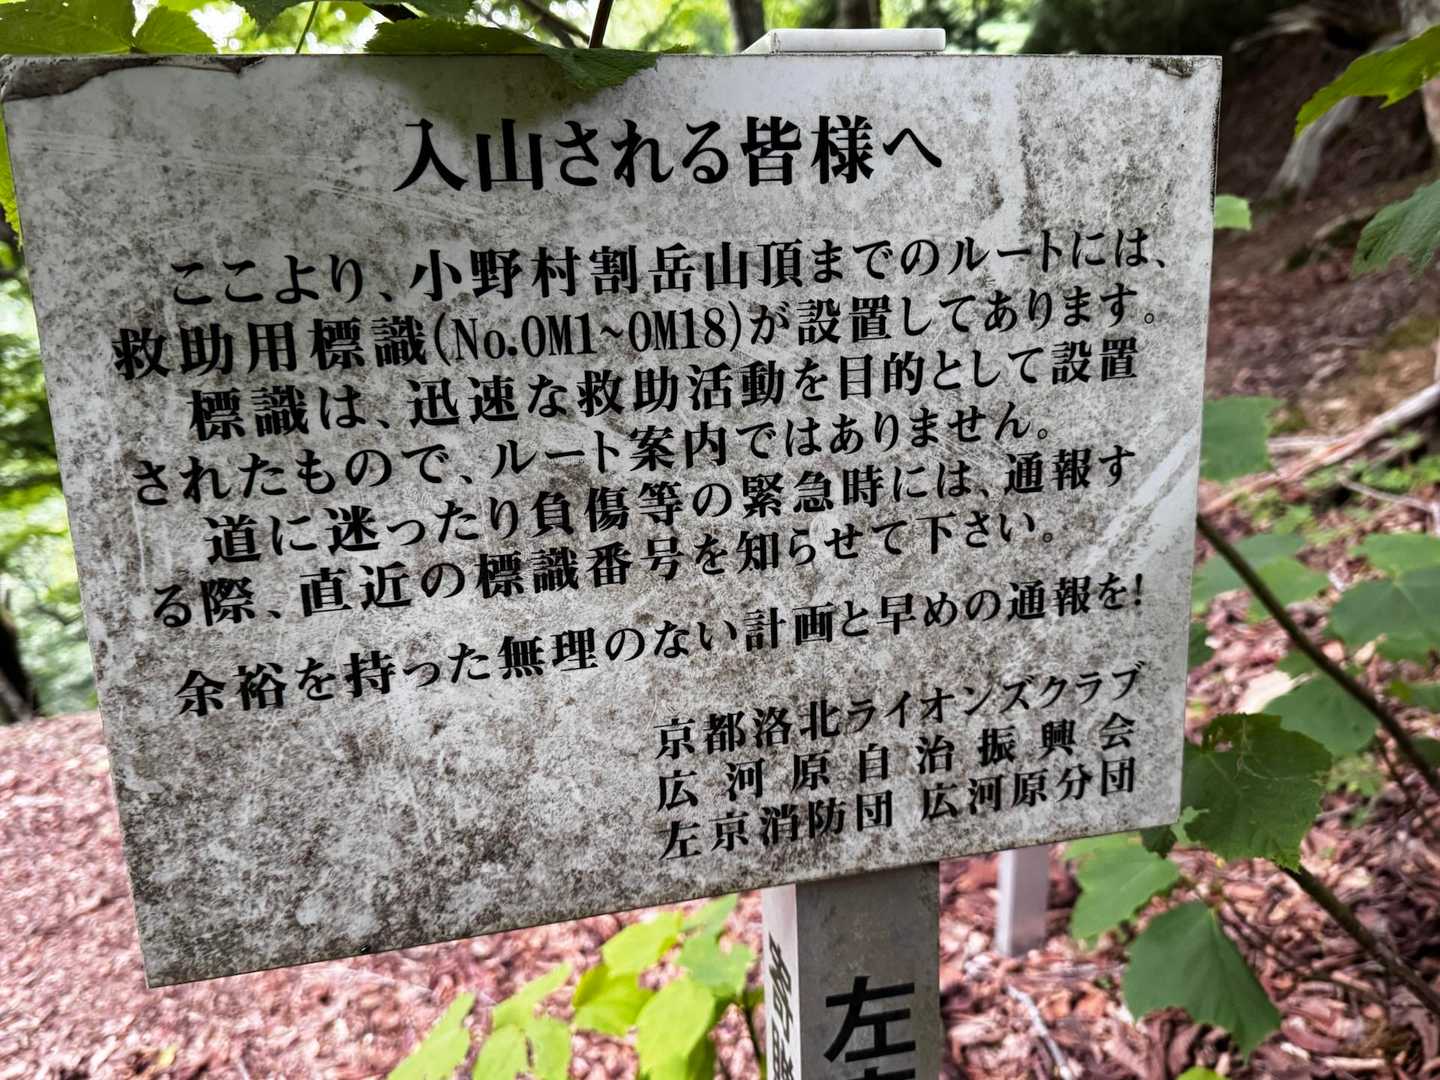 入山される皆様へ
ここより、小野村割岳山頂までのルートには、
救助用標識(No.OM1~OM18)が設置してあります。
標識は、迅速な救助活動を目的として設置
されたもので、ルート案内ではありません。
道に迷ったり負傷等の緊急時には、通報す
る際、直近の標識番号を知らせて下さい。
余裕を持った無理のない計画と早めの通報を!
京都洛北ライオンズクラブ
広河原自治振興会
左京消防団 広河原分団
左